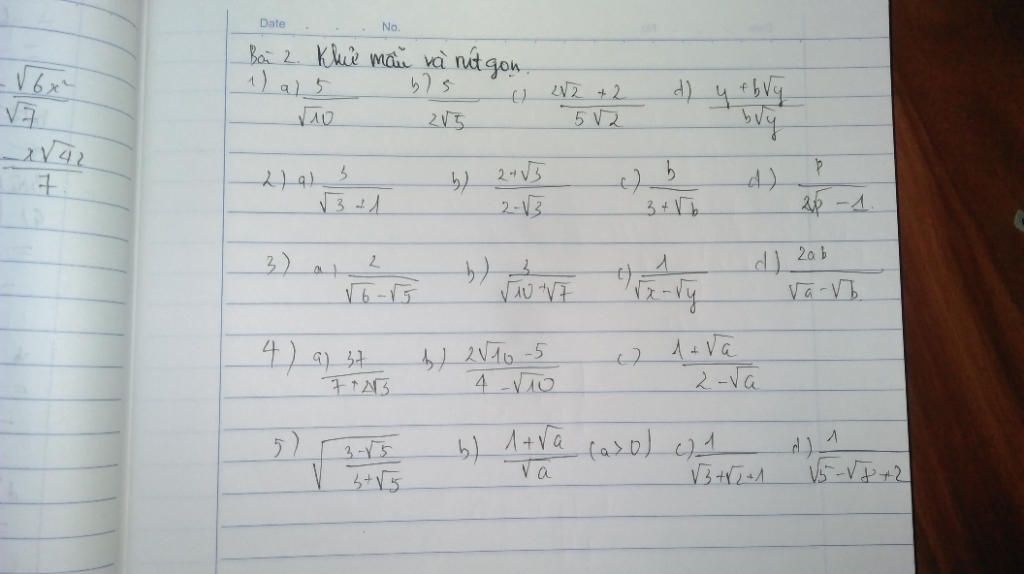 Date . . . No.
Bài 2. Khử mẫu và rút gọn.
1) a) 5/√10 b) 5/2√5 c) (2√2 + 2)/5√2 d) (y + b√y)/b√y
2) a) 3/(√3 + 1) b) (2+√3)/(2-√3) c) b/(3+√b) d) p/(2√p - 1)
3) a) 2/(√6 - √5) b) 3/(√10 + √7) c) 1/(√x - √y) d) 2ab/(√a - √b)
4) a) 37/(7 + 2√3) b) (2√10 - 5)/(4 - √10) c) (1 + √a)/(2 - √a)
5) √((3-√5)/(3+√5)) b) (1 + √a)/√a (a>0) c) 1/(√3+√2+1) d) 1/(√5-√8+2)
√6x²/√7
-x√42/7